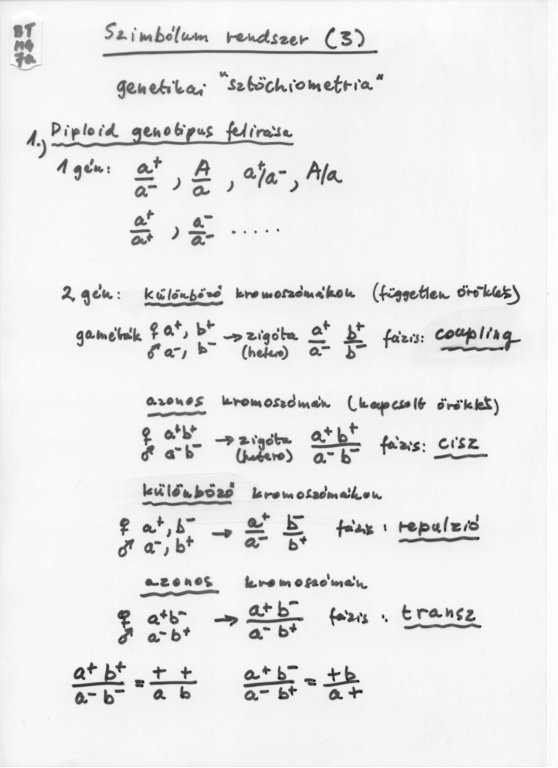 BT
Szimbólum rendszer (3)
genetikai "sztöchiometria"
1.) Diploid genotipus felirása
1 gén: a⁺/a⁻ , A/a , a⁺/a⁻ , A/a
a⁺/a⁺ , a⁻/a⁻ .....
2 gén: különböző kromoszómákon (független öröklés)
gaméták ♀ a⁺, b⁺ → zigóta a⁺/a⁻ b⁺/b⁻ fázis: coupling
♂ a⁻, b⁻ (hetero)
azonos kromoszómán (kapcsolt öröklés)
♀ a⁺b⁺ → zigóta a⁺b⁺/a⁻b⁻ fázis: cisz
♂ a⁻b⁻ (hetero)
különböző kromoszómákon
♀ a⁺, b⁻ → a⁺/a⁻ b⁻/b⁺ fázis: repulzió
♂ a⁻, b⁺
azonos kromoszómán
♀ a⁺b⁻ → a⁺b⁻/a⁻b⁺ fázis: transz
♂ a⁻b⁺
a⁺b⁺/a⁻b⁻ = + +/a b a⁺b⁻/a⁻b⁺ = +b/a+